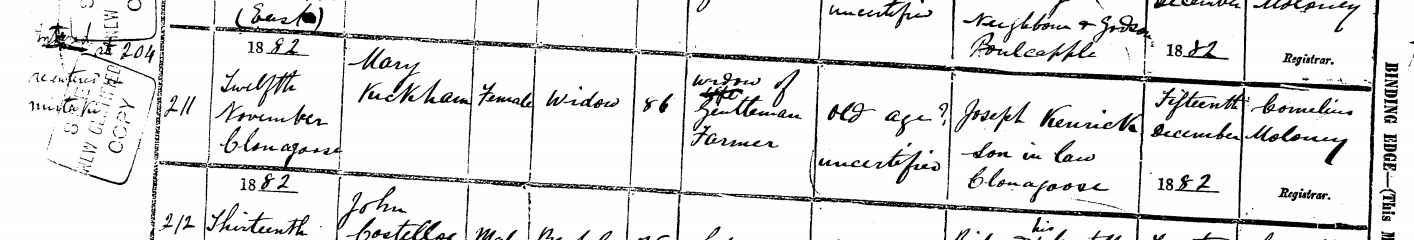 (East)
uncertified
Neighbour &
Poulcapple
December
1882
Moloney
Registrar.
at 204
re entered
mistake
COPY
211
1882
Twelfth
November
Clonagoose
Mary
Kickham
Female
Widow
86
widow of
wife
Gentleman
Farmer
old age?
uncertified
Joseph Kenrick
son in law
Clonagoose
Fifteenth
December
1882
Cornelius
Moloney
Registrar.
BINDING EDGE.—(This
212
1882
Thirteenth
John
Costelloe
his